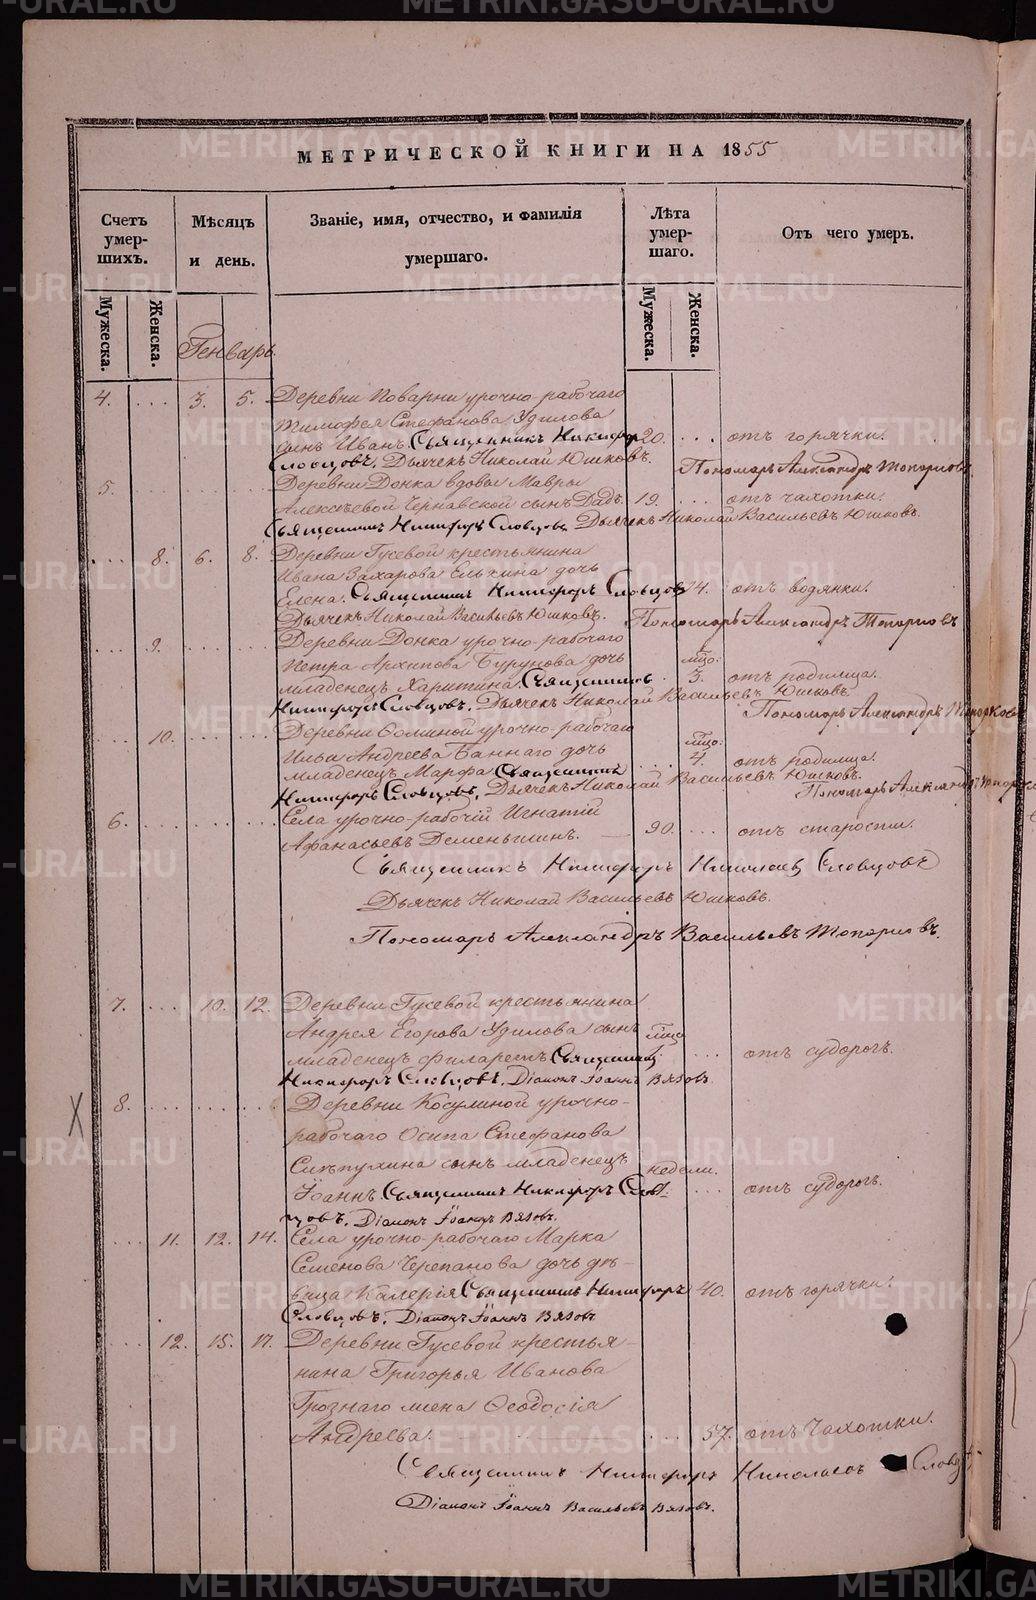 МЕТРИЧЕСКОЙ КНИГИ НА 1855
Счетъ умершихъ.
Мѣсяцъ и день.
Званіе, имя, отчество, и фамилія умершаго.
Лѣта умершаго.
Отъ чего умеръ.
Мужеска. Женска.
Мужеска. Женска.
Генварь.
4. ... 3. 5. Деревни Поварни урочно-рабочаго
Тимофея Стефанова Удилова
сынъ Иванъ. Священникъ Никифоръ 20. ... отъ горячки.
Словцовъ. Дьячекъ Николай Юшковъ. Пономарь Александръ Топорковъ
5. Деревни Донка вдовы Мавры
Алексѣевой Чернавской сынъ 19. ... отъ чахотки.
Священникъ Никифоръ Словцовъ Дьячекъ Николай Васильевъ Юшковъ.
... 8. 6. 8. Деревни Гусевой крестьянина
Ивана Захарова дочь
Елена. Священникъ Никифоръ Словцовъ 74. отъ водянки.
Дьячекъ Николай Васильевъ Юшковъ. Пономарь Александръ Топорковъ
... 9. Деревни Донка урочно-рабочаго
Петра Архипова Бурунова дочь
младенецъ Харитина. Священникъ 3. отъ родимца.
Никифоръ Словцовъ. Дьячекъ Николай Васильевъ Юшковъ
Пономарь Александръ Топорковъ
... 10. Деревни урочно-рабочаго
Ильи Андреева Баннаго дочь
младенецъ Марфа. Священникъ 4. отъ родимца.
Никифоръ Словцовъ. Дьячекъ Николай Васильевъ Юшковъ.
Пономарь Александръ Топорковъ
6. Села урочно-рабочій Игнатій
Афанасьевъ Деменьшинъ. 90. ... отъ старости.
Священникъ Никифоръ Николаевъ Словцовъ
Дьячекъ Николай Васильевъ Юшковъ.
Пономарь Александръ Васильевъ Топорковъ.
7. ... 10. 12. Деревни Гусевой крестьянина
Андрея Егорова Удилова сынъ
младенецъ Филаретъ. Священникъ ... отъ судорогъ.
Никифоръ Словцовъ. Діаконъ Іоаннъ Вязовъ
X 8. Деревни Косулиной урочно-
рабочаго Осипа Стефанова
Слѣпухина сынъ младенецъ недели.
Іоаннъ. Священникъ Никифоръ Слов- ... отъ судорогъ.
цовъ. Діаконъ Іоаннъ Вязовъ.
... 11. 12. 14. Села урочно-рабочаго Марка
Семенова Черепанова дочь дѣ-
вица Калерія Священникъ Никифоръ 40. отъ горячки.
Словцовъ. Діаконъ Іоаннъ Вязовъ
... 12. 15. 17. Деревни Гусевой крестья-
нина Григорья Иванова
Грознаго жена Ѳеодосія
Андреева. 57. отъ чахотки.
Священникъ Никифоръ Николаевъ Словц
Діаконъ Іоаннъ Васильевъ Вязовъ.
METRIKI.GASO-URAL.RU